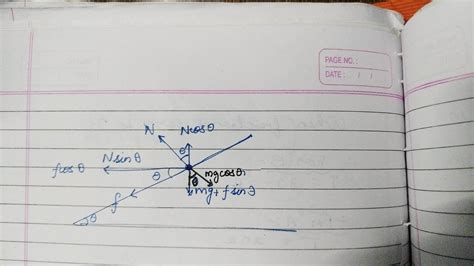 PAGE NO.:
DATE: / /
N
Ncosθ
θ
Nsinθ
fcosθ
θ
mgcosθ
θ
mg+fsinθ
f
θ